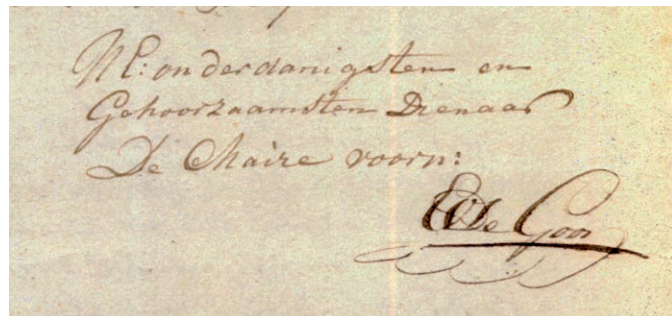 UE: onderdanigsten en
Gehoorzaamsten Dienaar
De Maire voorn:
De Goor